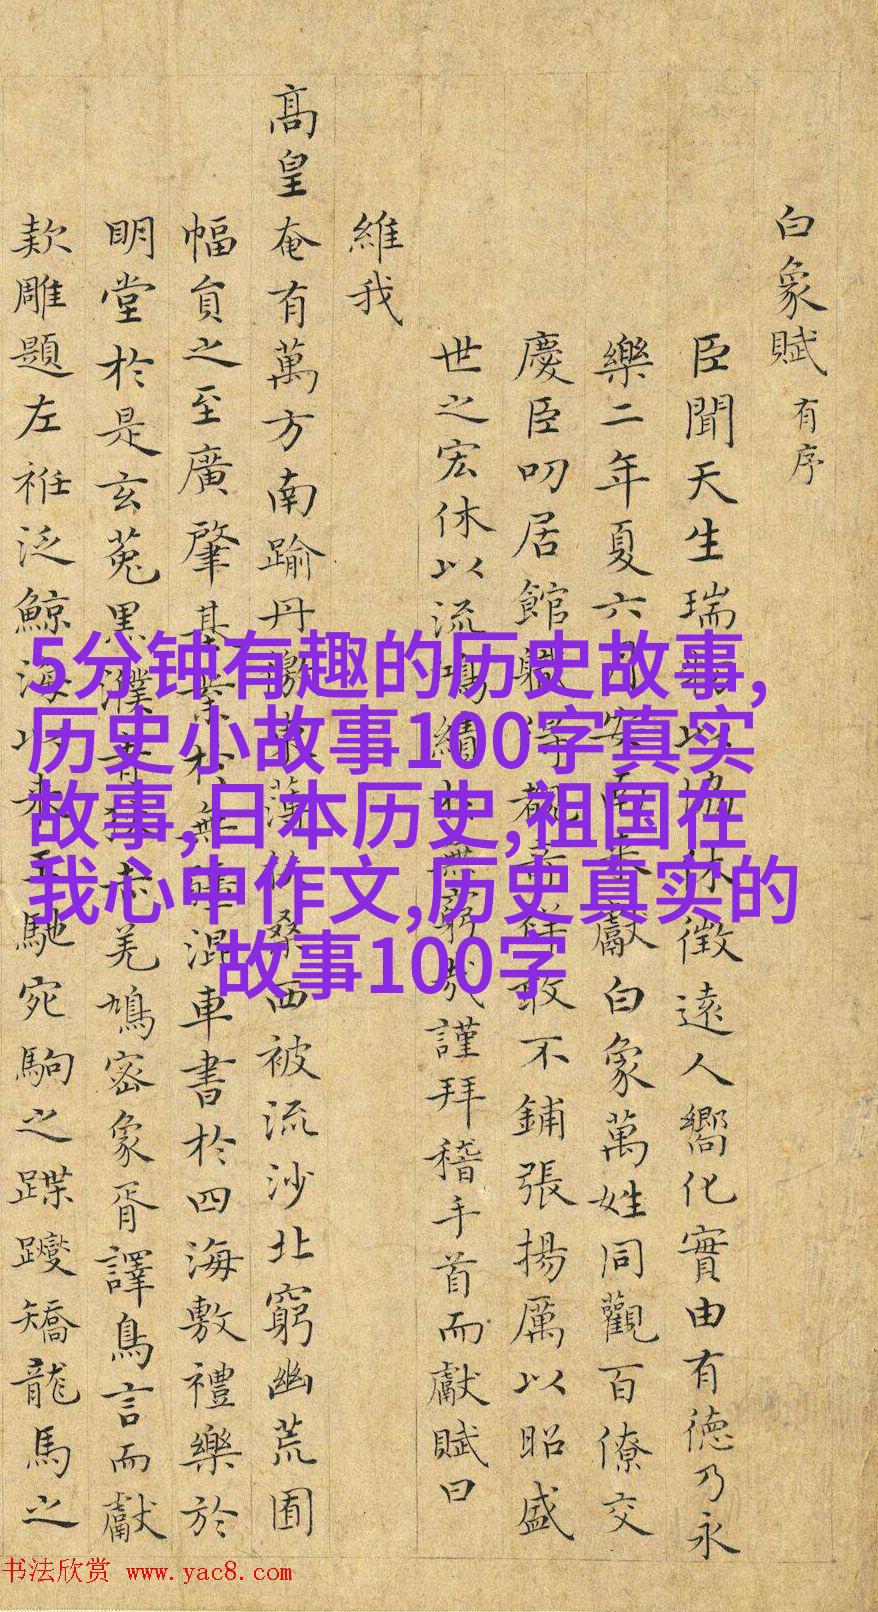 白象賦有序
臣聞天生瑞物以協休徵遠人嚮化實由有德乃永
樂二年夏六月安南來獻白象萬姓同觀百僚交
慶臣叨居館職得覩希鮮敢不鋪張揚厲以昭盛
世之宏休以流鴻績於無窮哉謹拜稽手首而獻賦曰
維我
高皇奄有萬方南踰丹徼東薄扶桑西被流沙北窮幽荒圃
幅員之至廣肇基業於無疆混車書於四海敷禮樂於
明堂於是玄菟黑濮青赤羌鳩密象胥譯鳥言而獻
款雕題左袵泛鯨海以來王馳宛駒之蹀躞矯龍馬之
5分钟有趣的历史故事,
历史小故事100字真实
故事,日本历史,祖国在
我心中作文,历史真实的
故事100字
书法欣赏 www.yac8.com